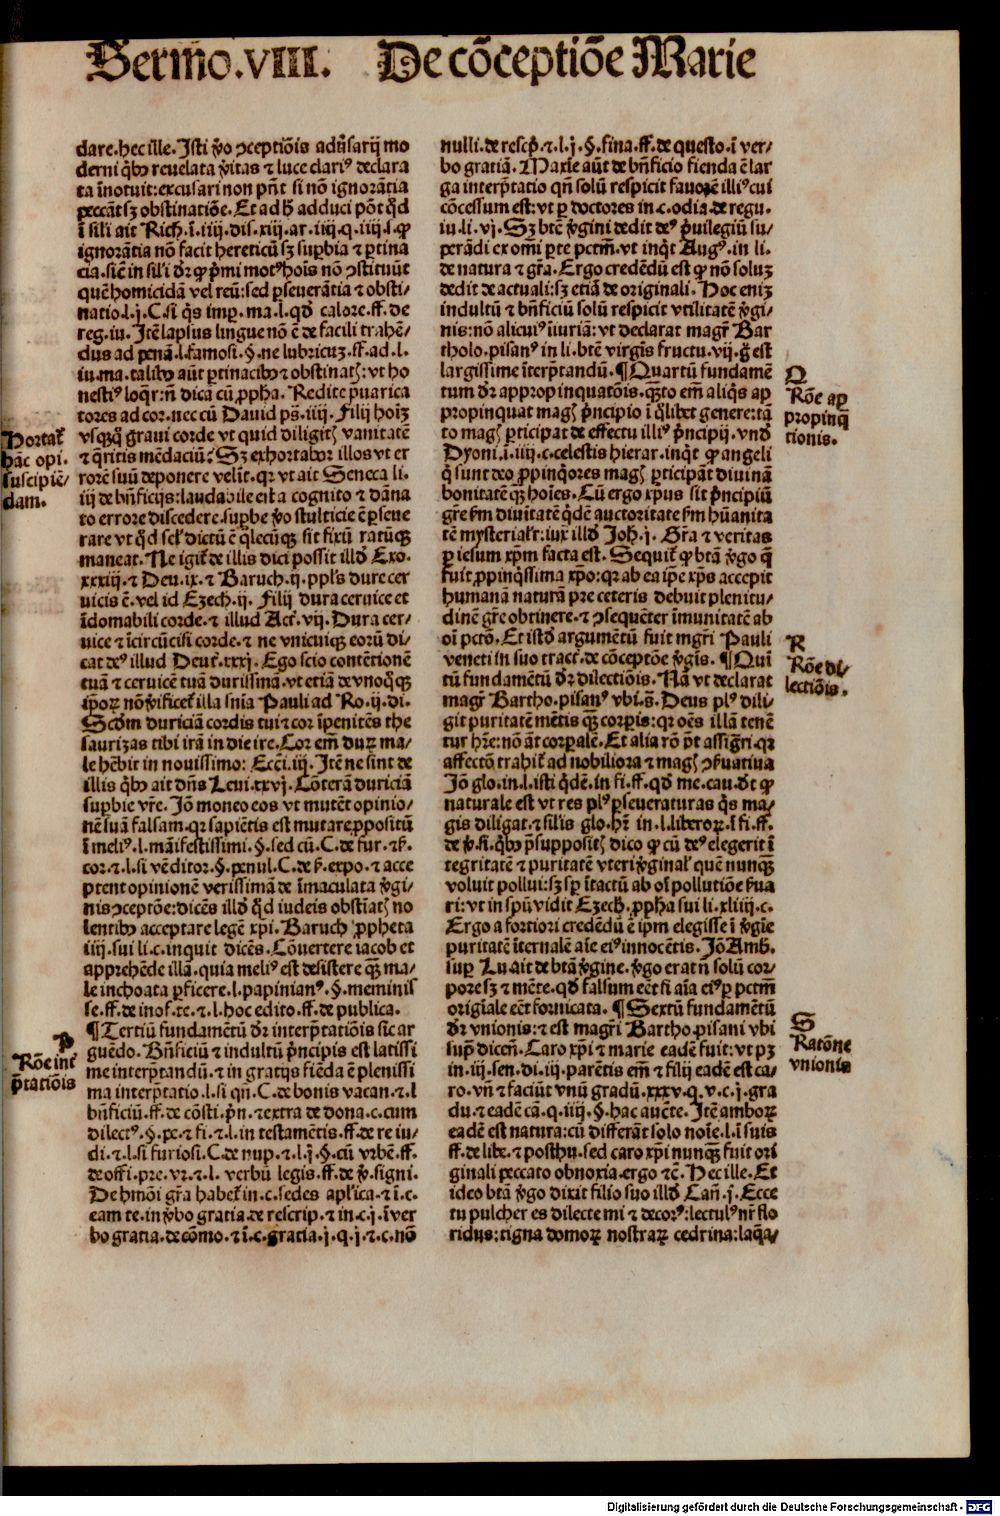 Sermo.VIII. De cōceptiōe Marie
dare. hec ille. Isti ṽo ꝯceptiōis adṽsarij mo
derni qͥbꝰ reuelata ṽitas ⁊ luce clariꝰ declara
ta īnotuit: excusari non pn̄t si nō ignorātia
peccāt sꝫ obstinatiōe. Et ad hͦ adduci pōt qͩ
ī sili ait Rich. ī. iiij. dis. xiij. ar. iiij. q. iiij. s. ꝙ
ignorātia nō facit hereticū sꝫ suꝑbia ⁊ ꝑtina
cia. sic̄ in sil'i dr̄ ꝙ pͥmi motꝰ hoīs nō ꝯstituūt
quē homicidā vel reū: sed ꝑseuerātia ⁊ obsti-
natio. l. j. C. si qͥs imꝑ. ma. l. qd̄ calore. ff. de
reg. iu. Itē lapsus lingue nō ē de facili trahē-
dus ad penā. l. famosi. §. ne lubricuꝫ. ff. ad. l.
iu. ma. talibꝰ aūt ꝑtinacibꝰ ⁊ obstinatꝭ: vt ho
nestiꝰ loqͬ: n̄ dicā cū ꝓpha. Redite p̄uarica
tores ad cor. nec cū Dauid ps̄. iiij. Filij hoīꝫ
vsqꝫqͦ graui corde vt quid diligitꝭ vanitatē
⁊ qͥritis mēdaciū? Sꝫ exhortabor illos vt er
rorē suū deponere velīt. qꝛ vt ait Seneca li.
iij de bn̄ficijs: laudabile est a cognito ⁊ dāna
to errore discedere. suꝑbe ṽo stulticie ē ꝑseue
rare vt qͩ sel' dictū ē qͣlecūqꝫ sit fixū ratūqꝫ
maneat. Ne igit̄ de illis dici possit illd̄ Exo.
xxxiij. ⁊ Deu. ix. ⁊ Baruch. ij. ppl's dure cer
vicis ē. vel id Ezech. ij. Filij dura ceruice et
īdomabili corde. ⁊ illud Act̄. vij. Dura cer-
vice ⁊ īcircūcisi corde. ⁊ ne vnicuiqꝫ eorū di
cat deꝰ illud Deut̄. xxxj. Ego scio contētionē
tuā ⁊ ceruicē tuā durissimā. vt etiā de vnoqͦqꝫ
ip̄oꝝ nō ṽificet̄ illa sn̄ia Pauli ad Ro. ij. di.
Scd̄m duriciā cordis tui ⁊ cor īpenitēs the
saurizas tibi irā in die ire. Cor em̄ duꝝ ma-
le hēbit in nouissimo: Ecci. iij. Itē ne sint de
illis qͥbꝰ ait dn̄s Leui. xxvj. Cōterā duriciā
suꝑbie vr̄e. Iō moneo eos vt mutēt opinio-
nē suā falsam. qꝛ sapiētis est mutare ꝓpositū
ī meliꝰ. l. māifestissimi. §. sed cū. C. de fur. ⁊ ẜ.
cor. ⁊. l. si vēditor. §. penul. C. de ẜ. expo. ⁊ acce
ptent opinionē verissimā de īmaculata ṽgi-
nis ꝯceptōe: dicēs illd̄ qͩ iudeis obstīatꝭ no
lentibꝰ acceptare legē xp̄i. Baruch ꝓpheta
iiij. sui li. c. inquit dicēs. Cōuertere iacob et
apprehēde illā. quia meliꝰ est desistere qͣꝫ ma-
le inchoata ꝑficere. l. papinianꝰ. §. meminis
se. ff. de inof. te. ⁊. l. hoc edito. ff. de publica.
¶ Tertiū fundamētū dr̄ interp̄tatiōis sic̄ ar
guēdo. Bn̄ficiū ⁊ indultū pͥncipis est latissi
me interp̄tandū. ⁊ in gratijs fiēda ē plenissi
ma interp̄tatio. l. si qn̄. C. de bonis vacan. ⁊. l
bn̄ficiū. ff. de cōsti. pͥn. ⁊ extra de dona. c. cum
dilectꝰ. §. pe. ⁊ fi. ⁊. l. in testamētis. ff. de re iu-
di. ⁊. l. si furiosi. C. de nup. ⁊. l. j. §. cū vrbē. ff.
de offi. pre. vr. ⁊. l. verbū legis. ff. de ṽ. signi.
De hmōi gr̄a habet̄ in. c. sedes apl'ica. ⁊ ī. c.
eam te. in ṽbo gratia. de rescrip. ⁊ in. c. j. ī ver
bo gratia. de cōmo. ⁊ ī. c. gratia. j. q. j. ⁊. c. nō
Hortat̄
hāc opi.
suscipiē-
dam.
P
Rōe int̄
p̄tatiōis
nulli. de rescp̄. ⁊. l. j. §. fina. ff. de questo. ī ver-
bo gratiā. Maxīe aūt de bn̄ficio fienda ē lar
ga interp̄tatio qn̄ solū respicit fauorē illiꝰ cui
cōcessum est: vt ꝑ doctores in. c. odia. de regu.
iu. li. vj. Sꝫ btē ṽgini dedit deꝰ pͥuilegiū su-
perādi ex om̄i ꝑte pctm̄. vt inqͥt Augꝰ. in li.
de natura ⁊ gr̄a. Ergo credēdū est ꝙ nō soluꝫ
dedit de actuali: sꝫ etiā de originali. Hoc eniꝫ
indultū ⁊ bn̄ficiū solū respicit vtilitatē ṽgi-
nis: nō alicuiꝰ īiuriā: vt declarat magr̄ Bar
tholo. pisanꝰ in li. btē virgīs fructu. vij. gͦ est
largissime īterp̄tandū. ¶ Quartū fundamē
tum dr̄ appropinquatōis. qͣꝫto em̄ aliqͥs ap
propinquat magꝭ pͥncipio ī qͦlibet genere: tā
to magꝭ ꝑticipat de effectu illiꝰ pͥncipij. vnd̄
Dyoni. ī. iiij. c. celestis hierar. inqͥt ꝙ angeli
qͥ sunt deo ꝓpinqͥores magꝭ ꝑticipāt diuinā
bonitatē qͣꝫ hoīes. Cū ergo xp̄us sit pͥncipiū
gr̄e ẜm diuītatē qͥdē auctoritate ẜm hūanita
tē mysterialr̄: iux illd̄ Joh. j. Gr̄a ⁊ veritas
ꝑ iesum xp̄m facta est. Sequit̄ ꝙ btā ṽgo qͣ
fuit ꝓpinqͥssima xp̄o: qꝛ ab ea ip̄e xp̄s accepit
humanā naturā pre ceteris debuit plenitu-
dinē gr̄e obtinere. ⁊ ꝯsequēter īmunitatē ab
oī pctō. Et istd̄ argumētū fuit mgr̄i Pauli
veneti in suo tract̄. de cōceptōe ṽgīs. ¶ Quī
tū fundamētū dr̄ dilectiōis. Nā vt declarat
magr̄ Bartho. pisanꝰ vbi. s̄. Deus plꝰ dili-
git puritatē mētis qͣꝫ corpis: qꝛ oēs illā tenē
tur hr̄e: nō āt corꝑalē. Et alia rō p̄t assigͣri. qꝛ
affectō trahit̄ ad nobiliora ⁊ magꝭ ꝯẜuatiua
Iō glo. in. l. isti qͥdē. in fi. ff. qd̄ me. cau. dt̄ ꝙ
naturale est vt res plꝰ ꝑseueraturas qͥs ma-
gis diligat. ⁊ silis glo. hr̄ in. l. liberoꝝ. ī fi. ff.
de ṽ. si. qͥbꝰ p̄suppositꝭ dico ꝙ cū deꝰ elegerit ī
tegritatē ⁊ puritatē vteri ṽginal' quē nunqͣꝫ
voluit pollui: sꝫ sꝑ ītactū ab oī pollutiōe ẜua
ri: vt in spū vidit Ezech. ꝓpha sui li. xliiij. c.
Ergo a fortiori credēdū ē ip̄m elegisse ī ṽgīe
puritatē īternalē aīe eiꝰ innocētis. Iō Amb.
suꝑ Lu. ait de btā ṽgine. ṽgo erat n̄ solū cor-
pore sꝫ ⁊ mēte. qd̄ falsum eēt si aīa eiꝰ ꝑ pctm̄
origīale eēt fornicata. ¶ Sextū fundamētū
dr̄ vnionis: ⁊ est magr̄i Bartho. pisani vbi
sup̄ dicen̄. Caro xp̄i ⁊ marie eadē fuit: vt pꝫ
in. iij. sen. di. iij. parētis em̄ ⁊ filij eadē est ca-
ro. vn̄ ⁊ faciūt vnū gradū. xxxv. q. v. c. j. gra
du. ⁊ eadē cā. q. iiij. §. hac auc̄te. Itē amboꝝ
eadē est natura: cū differāt solo noīe. l. ī suis
ff. de libe. ⁊ posthu. sed caro xp̄i nunqͣꝫ fuit ori
ginali peccato obnoxia. ergo ⁊c̄. Hec ille. Et
ideo btā ṽgo dixit filio suo illd̄ Can̄. j. Ecce
tu pulcher es dilecte mi ⁊ decorꝰ: lectulꝰ nr̄ flo
ridus: tigna domoꝝ nostraꝝ cedrina: laqͣa-
Q
Rōe ap
propinq̄
tionis.
R
Rōe di-
lectiōis.
S
Ratōne
vnionis
Digitalisierung gefördert durch die Deutsche Forschungsgemeinschaft - DFG